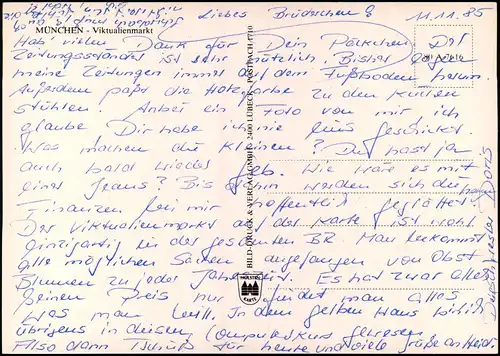 MÜNCHEN - Viktualienmarkt
Liebes Brüderchen! 11.11.85
Hab vielen Dank für Dein Päckchen. Der
Zeitungsständer ist sehr nützlich. Bisher lagen
meine Zeitungen immer auf dem Fußboden herum.
Außerdem paßt die Holzfarbe zu den
Stühlen. Anbei ein Foto von mir ich
glaube Dir habe ich nie eins geschickt.
Was machen die Kleinen? Du hast ja
auch bald wieder Geb. Wie wäre es mit
einer Jeans? Bis dahin werden sich die
Finanzen bei mir hoffentlich geglättet haben.
Der Viktualienmarkt auf der Karte ist wohl
einzigartig in der gesamten BR. Man bekommt
alle möglichen Sachen angefangen von Obst
Blumen zu jeder Jahreszeit. Es hat zwar alles
seinen Preis nur findet man alles
was man will. In dem gelben Haus bin ich
übrigens in diesem Computerkurs gewesen.
Also dann Tschüß für heute und viele Grüße an Heidi
BILD-DRUCK & VERLAG GMBH · 2400 LÜBECK · POSTFACH 1710
HOLSTEN
KARTE